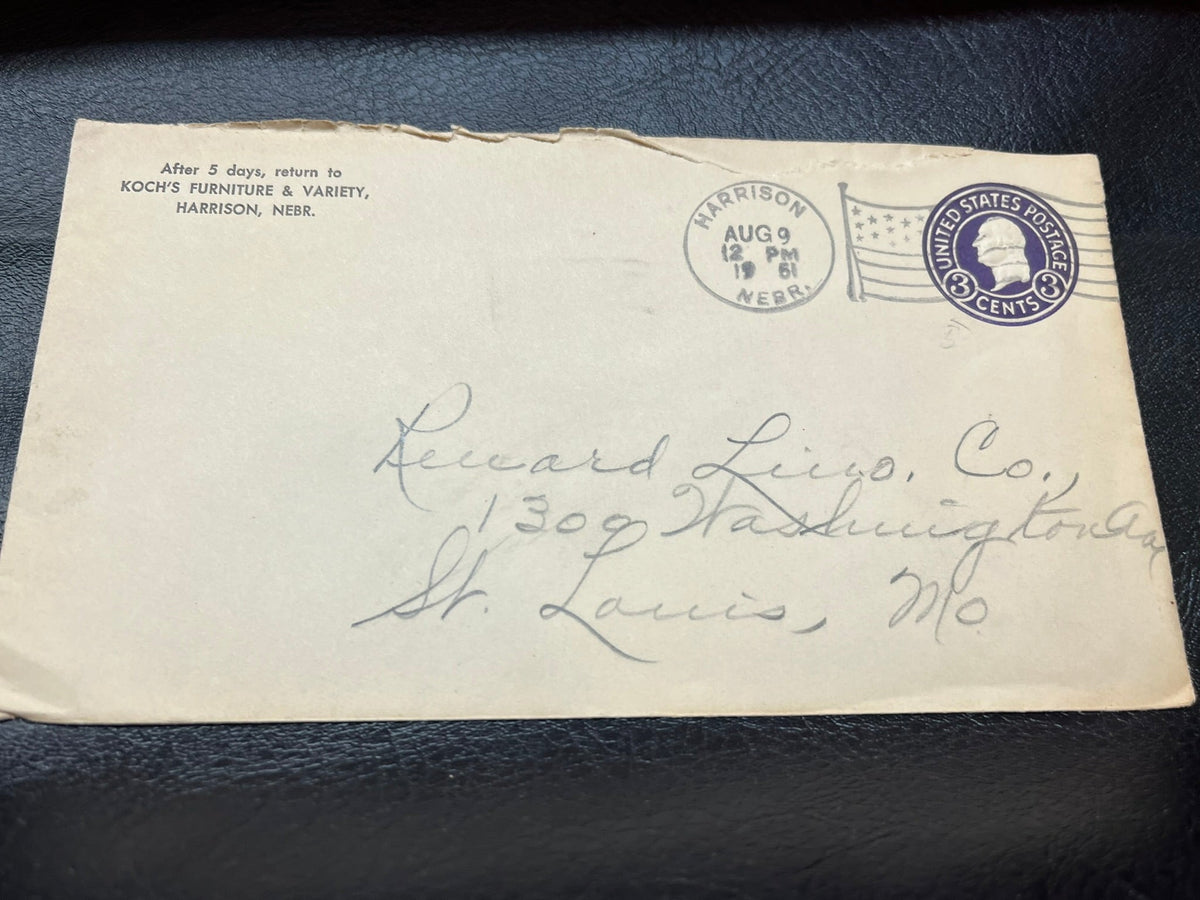 After 5 days, return to
KOCH'S FURNITURE & VARIETY,
HARRISON, NEBR.
HARRISON
AUG 9
12 PM
19 51
NEBR.
UNITED STATES POSTAGE
3 CENTS 3
Co.,
1309 Washington Ave
St. Louis, Mo